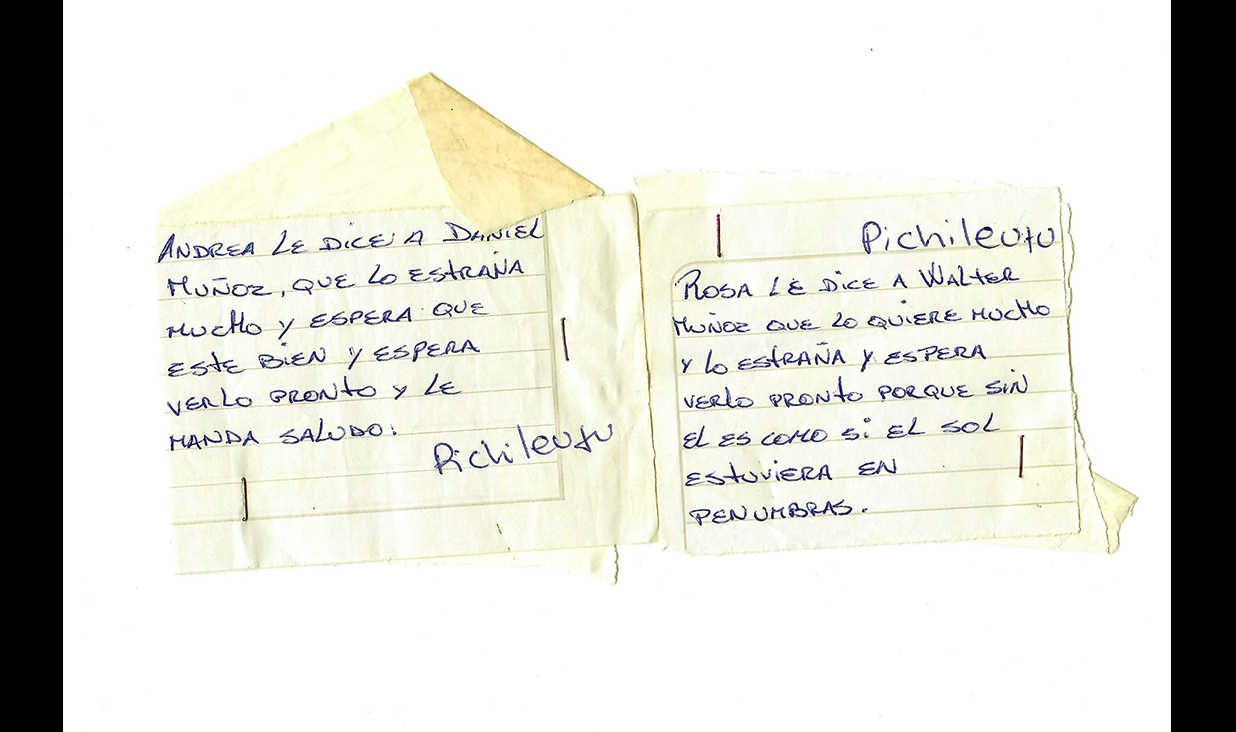 ANDREA LE DICE: A DANIEL
MUÑOZ, QUE LO ESTRAÑA
MUCHO Y ESPERA QUE
ESTE BIEN Y ESPERA
VERLO PRONTO Y LE
MANDA SALUDO.
Pichileufu
Pichileufu
ROSA LE DICE A WALTER
MUÑOZ QUE LO QUIERE MUCHO
Y LO ESTRAÑA Y ESPERA
VERLO PRONTO PORQUE SIN
EL ES COMO SI EL SOL
ESTUVIERA EN
PENUMBRAS.